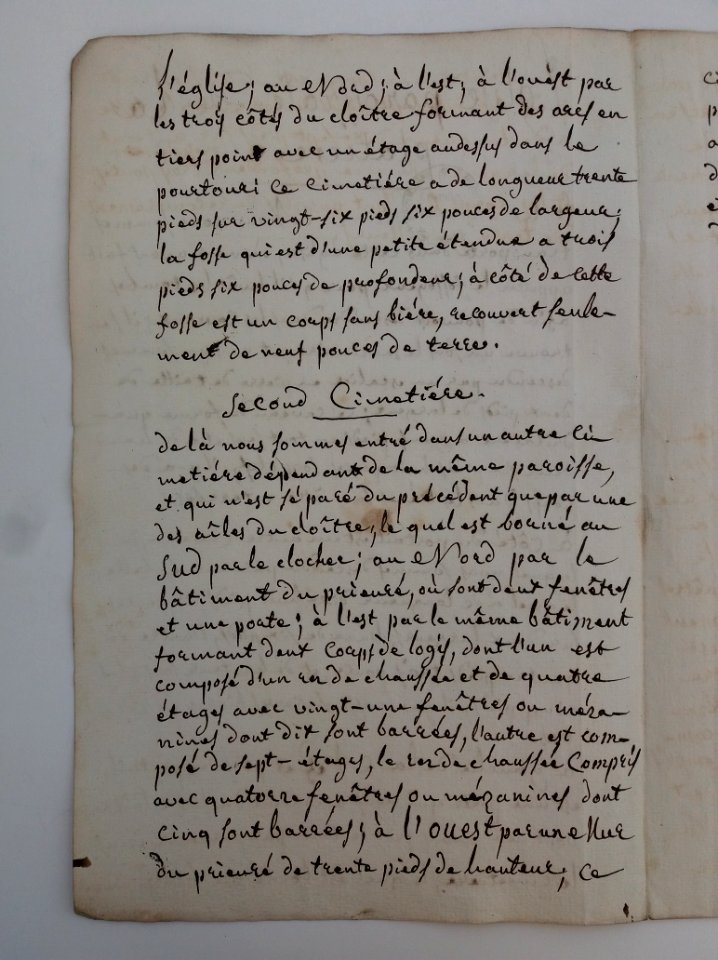 L'église; au Nord; à l'est; à l'ouèst par
les trois côtés du cloître formant des arcs en
tiers point avec un étage audessus dans le
pourtour: ce cimetiére a de longueur trente
pieds sur vingt-six pieds six pouces de largeur;
la fosse qui est d'une petite étendue a trois
pieds six pouces de profondeur; à côté de cette
fosse est un corps sans biére, recouvert seule-
ment de neuf pouces de terre.
Second Cimetiére.
de là nous sommes entré dans un autre Ci
metiére dépendant de la même paroisse,
et qui n'est séparé du précédent que par une
des aîles du cloître, le quel est borné au
Sud par le clocher; au Nord par le
bâtiment du prieuré, où sont deux fenêtres
et une porte; à l'est par le même bâtiment
formant deux Corps de logis, dont l'un est
composé d'un rez de chaussée et de quatre
étages avec vingt-une fenêtres ou méza-
nines dont dix sont barrées, l'autre est com-
posé de sept-étages, le rez de chaussée Compris
avec quatorze fenêtres ou mézanines dont
cinq sont barrées; à l'ouest par une Mur
du prieuré de trente pieds de hauteur; ce